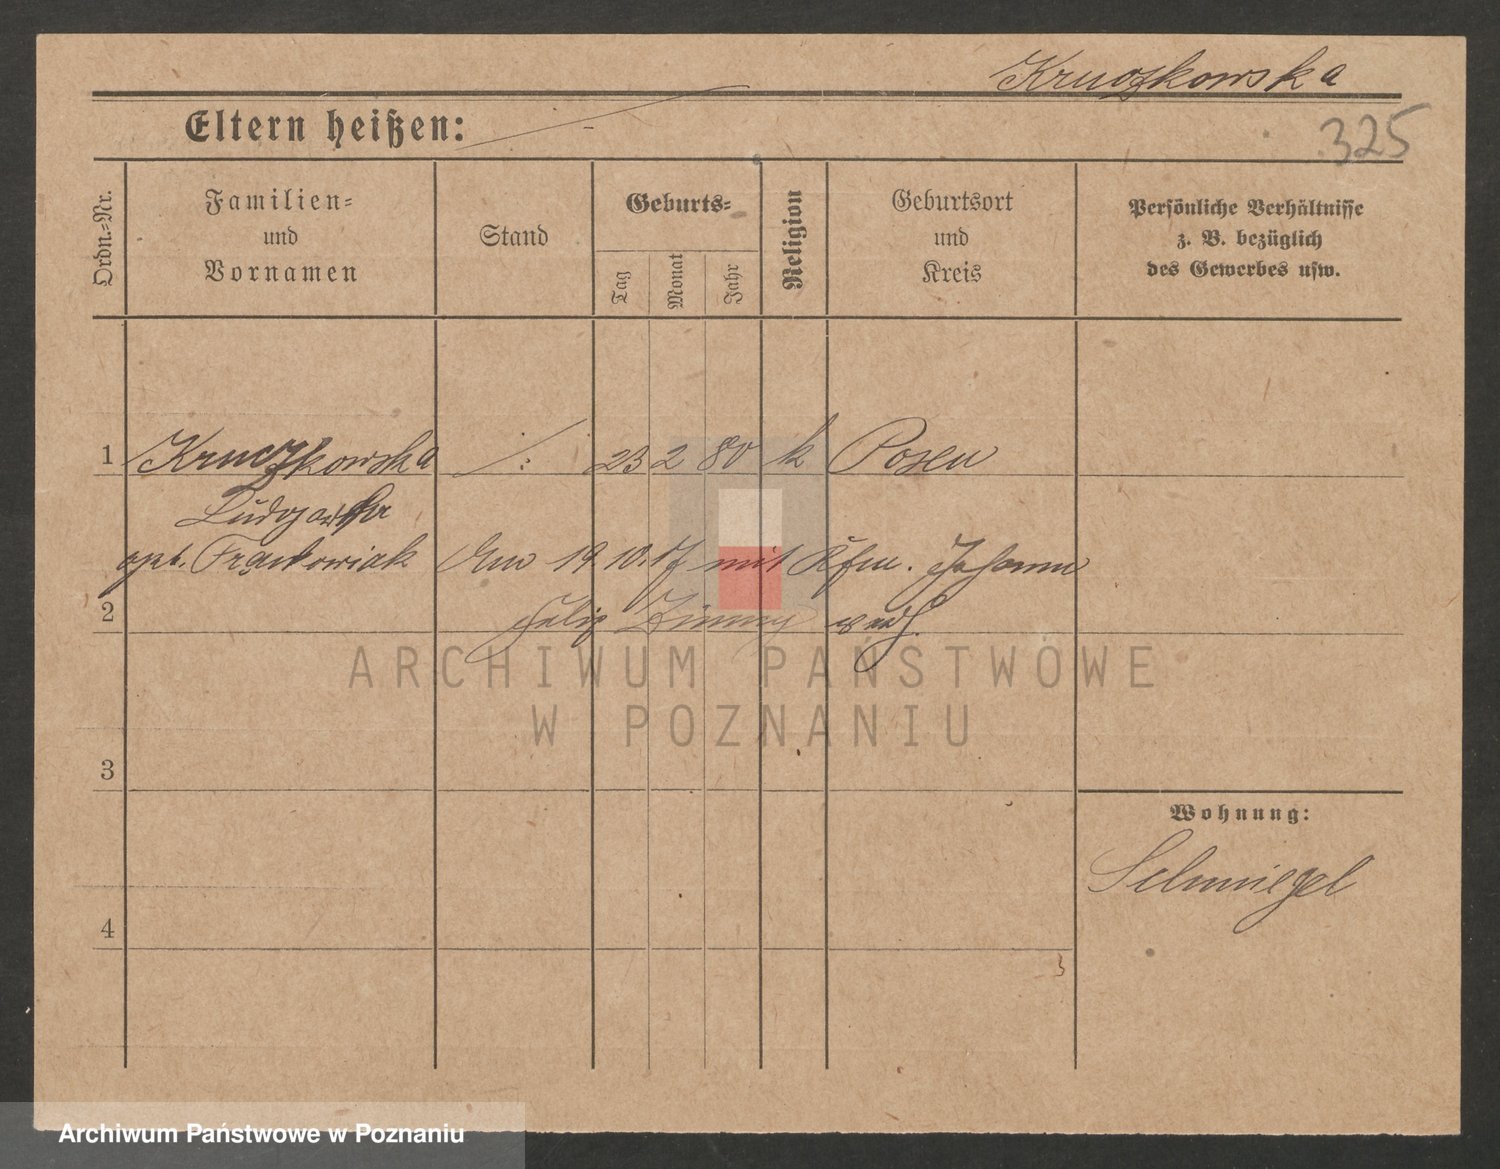 Kruczkowska
Eltern heißen: -
325
Ordn.-Nr.
Familien-
und
Vornamen
Stand
Geburts-
Tag
Monat
Jahr
Religion
Geburtsort
und
Kreis
Persönliche Verhältnisse
z. B. bezüglich
des Gewerbes usw.
1 Kruczkowska ./. 23 2 80 k Posen
Ludgarda
geb. Frąckowiak Am 19.10.17 mit Kfm. Johann
2 Felix Zimny verh.
ARCHIWUM PAŃSTWOWE
W POZNANIU
3
Wohnung:
Schmiegel
4
3
Archiwum Państwowe w Poznaniu